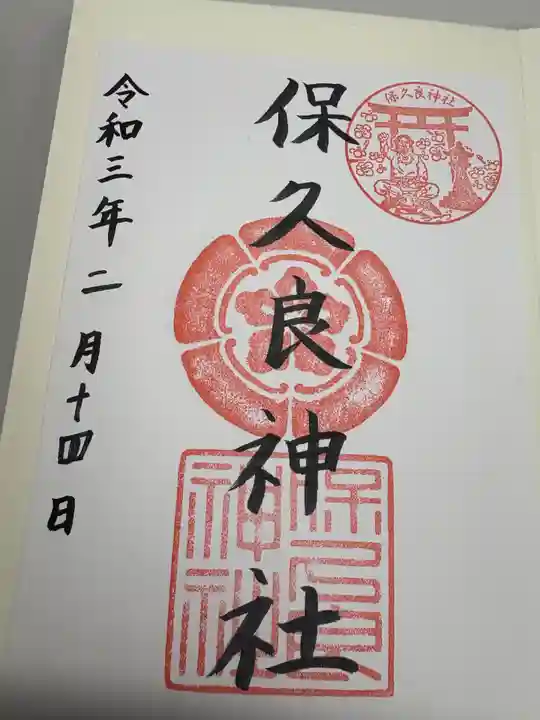 保久良神社
保久良神社
保久良
神社
令和三年二月十四日